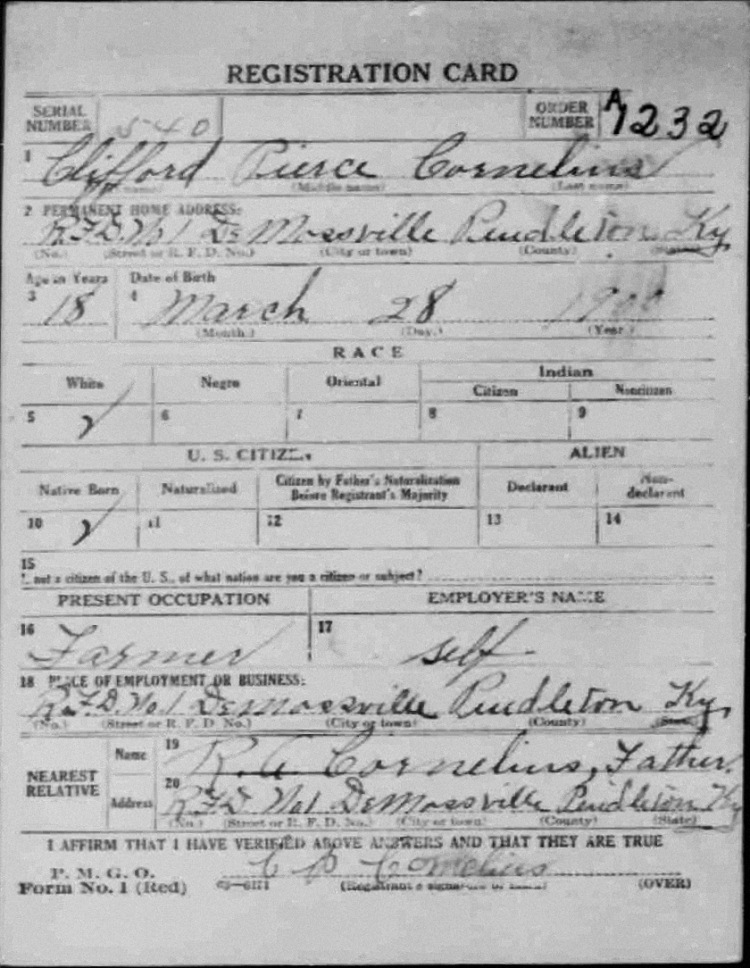 REGISTRATION CARD
SERIAL NUMBER 540 ORDER NUMBER A1232
1 Clifford Pierce Cornelius
(Middle name) (Last name)
2 PERMANENT HOME ADDRESS:
R.F.D. No 1 DeMossville Pendleton Ky
(No.) (Street or R. F. D. No.) (City or town) (County) (State)
Age in Years Date of Birth
3 18 4 March 28 1900
(Month.) (Day.) (Year.)
RACE
White Negro Oriental Indian
Citizen Noncitizen
5 6 7 8 9
U. S. CITIZEN ALIEN
Native Born Naturalized Citizen by Father's Naturalization Before Registrant's Majority Declarant Non-declarant
10 11 12 13 14
15
If not a citizen of the U. S., of what nation are you a citizen or subject?
PRESENT OCCUPATION EMPLOYER'S NAME
16 Farmer 17 self
18 PLACE OF EMPLOYMENT OR BUSINESS:
R.F.D. No. 1 DeMossville Pendleton Ky.
(No.) (Street or R. F. D. No.) (City or town) (County) (State)
NEAREST RELATIVE
Name 19 R. A. Cornelius, Father.
Address 20 R.F.D. No1 DeMossville Pendleton Ky
(No.) (Street or R. F. D. No.) (City or town) (County) (State)
I AFFIRM THAT I HAVE VERIFIED ABOVE ANSWERS AND THAT THEY ARE TRUE
P. M. G. O.
Form No. 1 (Red) C P Cornelius
(Registrant's signature or mark) (OVER)